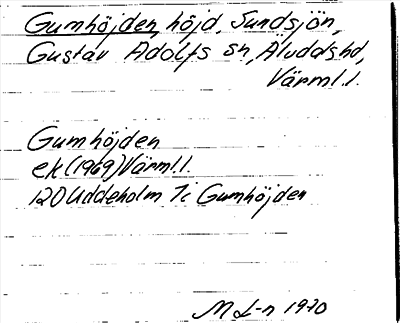 Gumhöjden, höjd, Sundsjön,
Gustav Adolfs sn, Älvdals hd,
Värml. l.
Gumhöjden
ek (1969) Värml. l.
120 Uddeholm 7c Gumhöjden
M L-n 1970